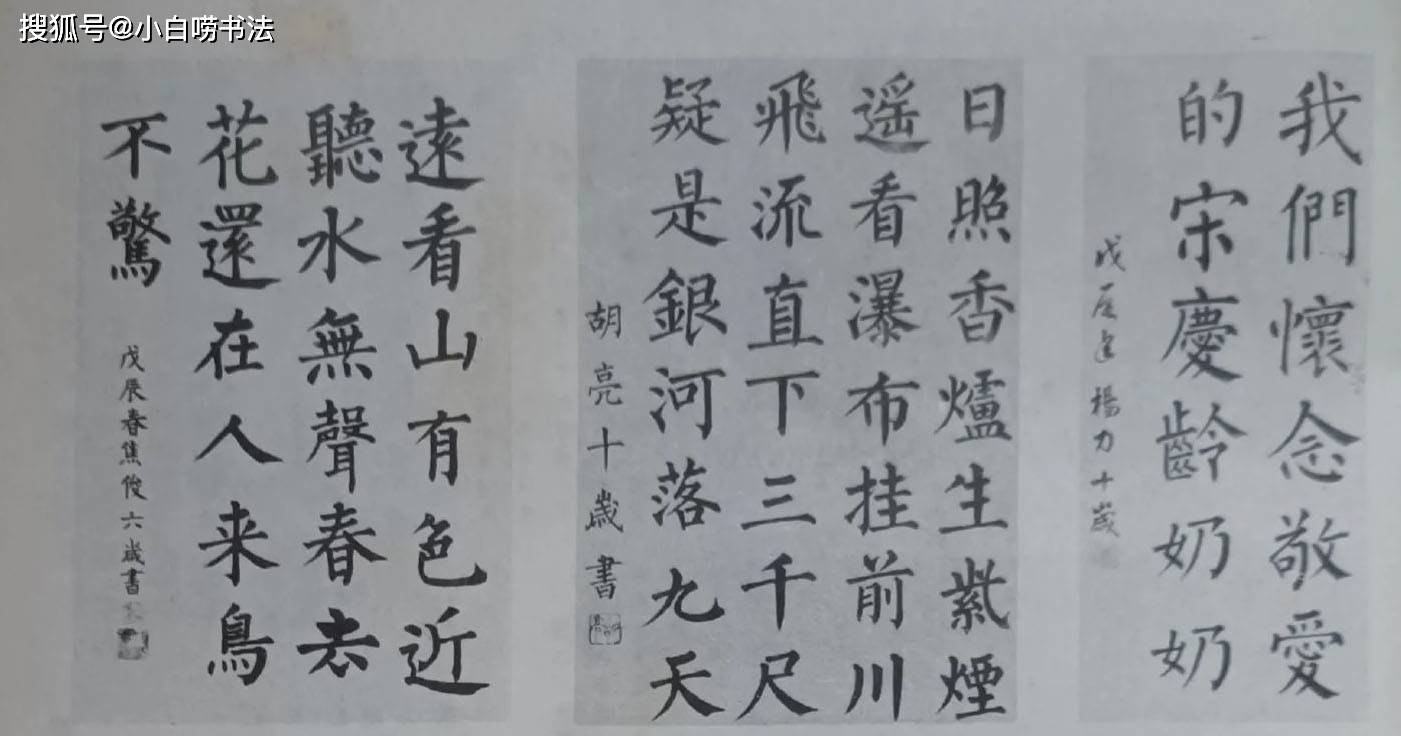 搜狐号@小白唠书法
我們懷念敬愛
的宋慶齡奶奶
戊辰年楊力十歲
日照香爐生紫煙
遥看瀑布挂前川
飛流直下三千尺
疑是銀河落九天
胡亮十歲書
遠看山有色近
聽水無聲春去
花還在人来鳥
不驚
戊辰春焦俊六歲書